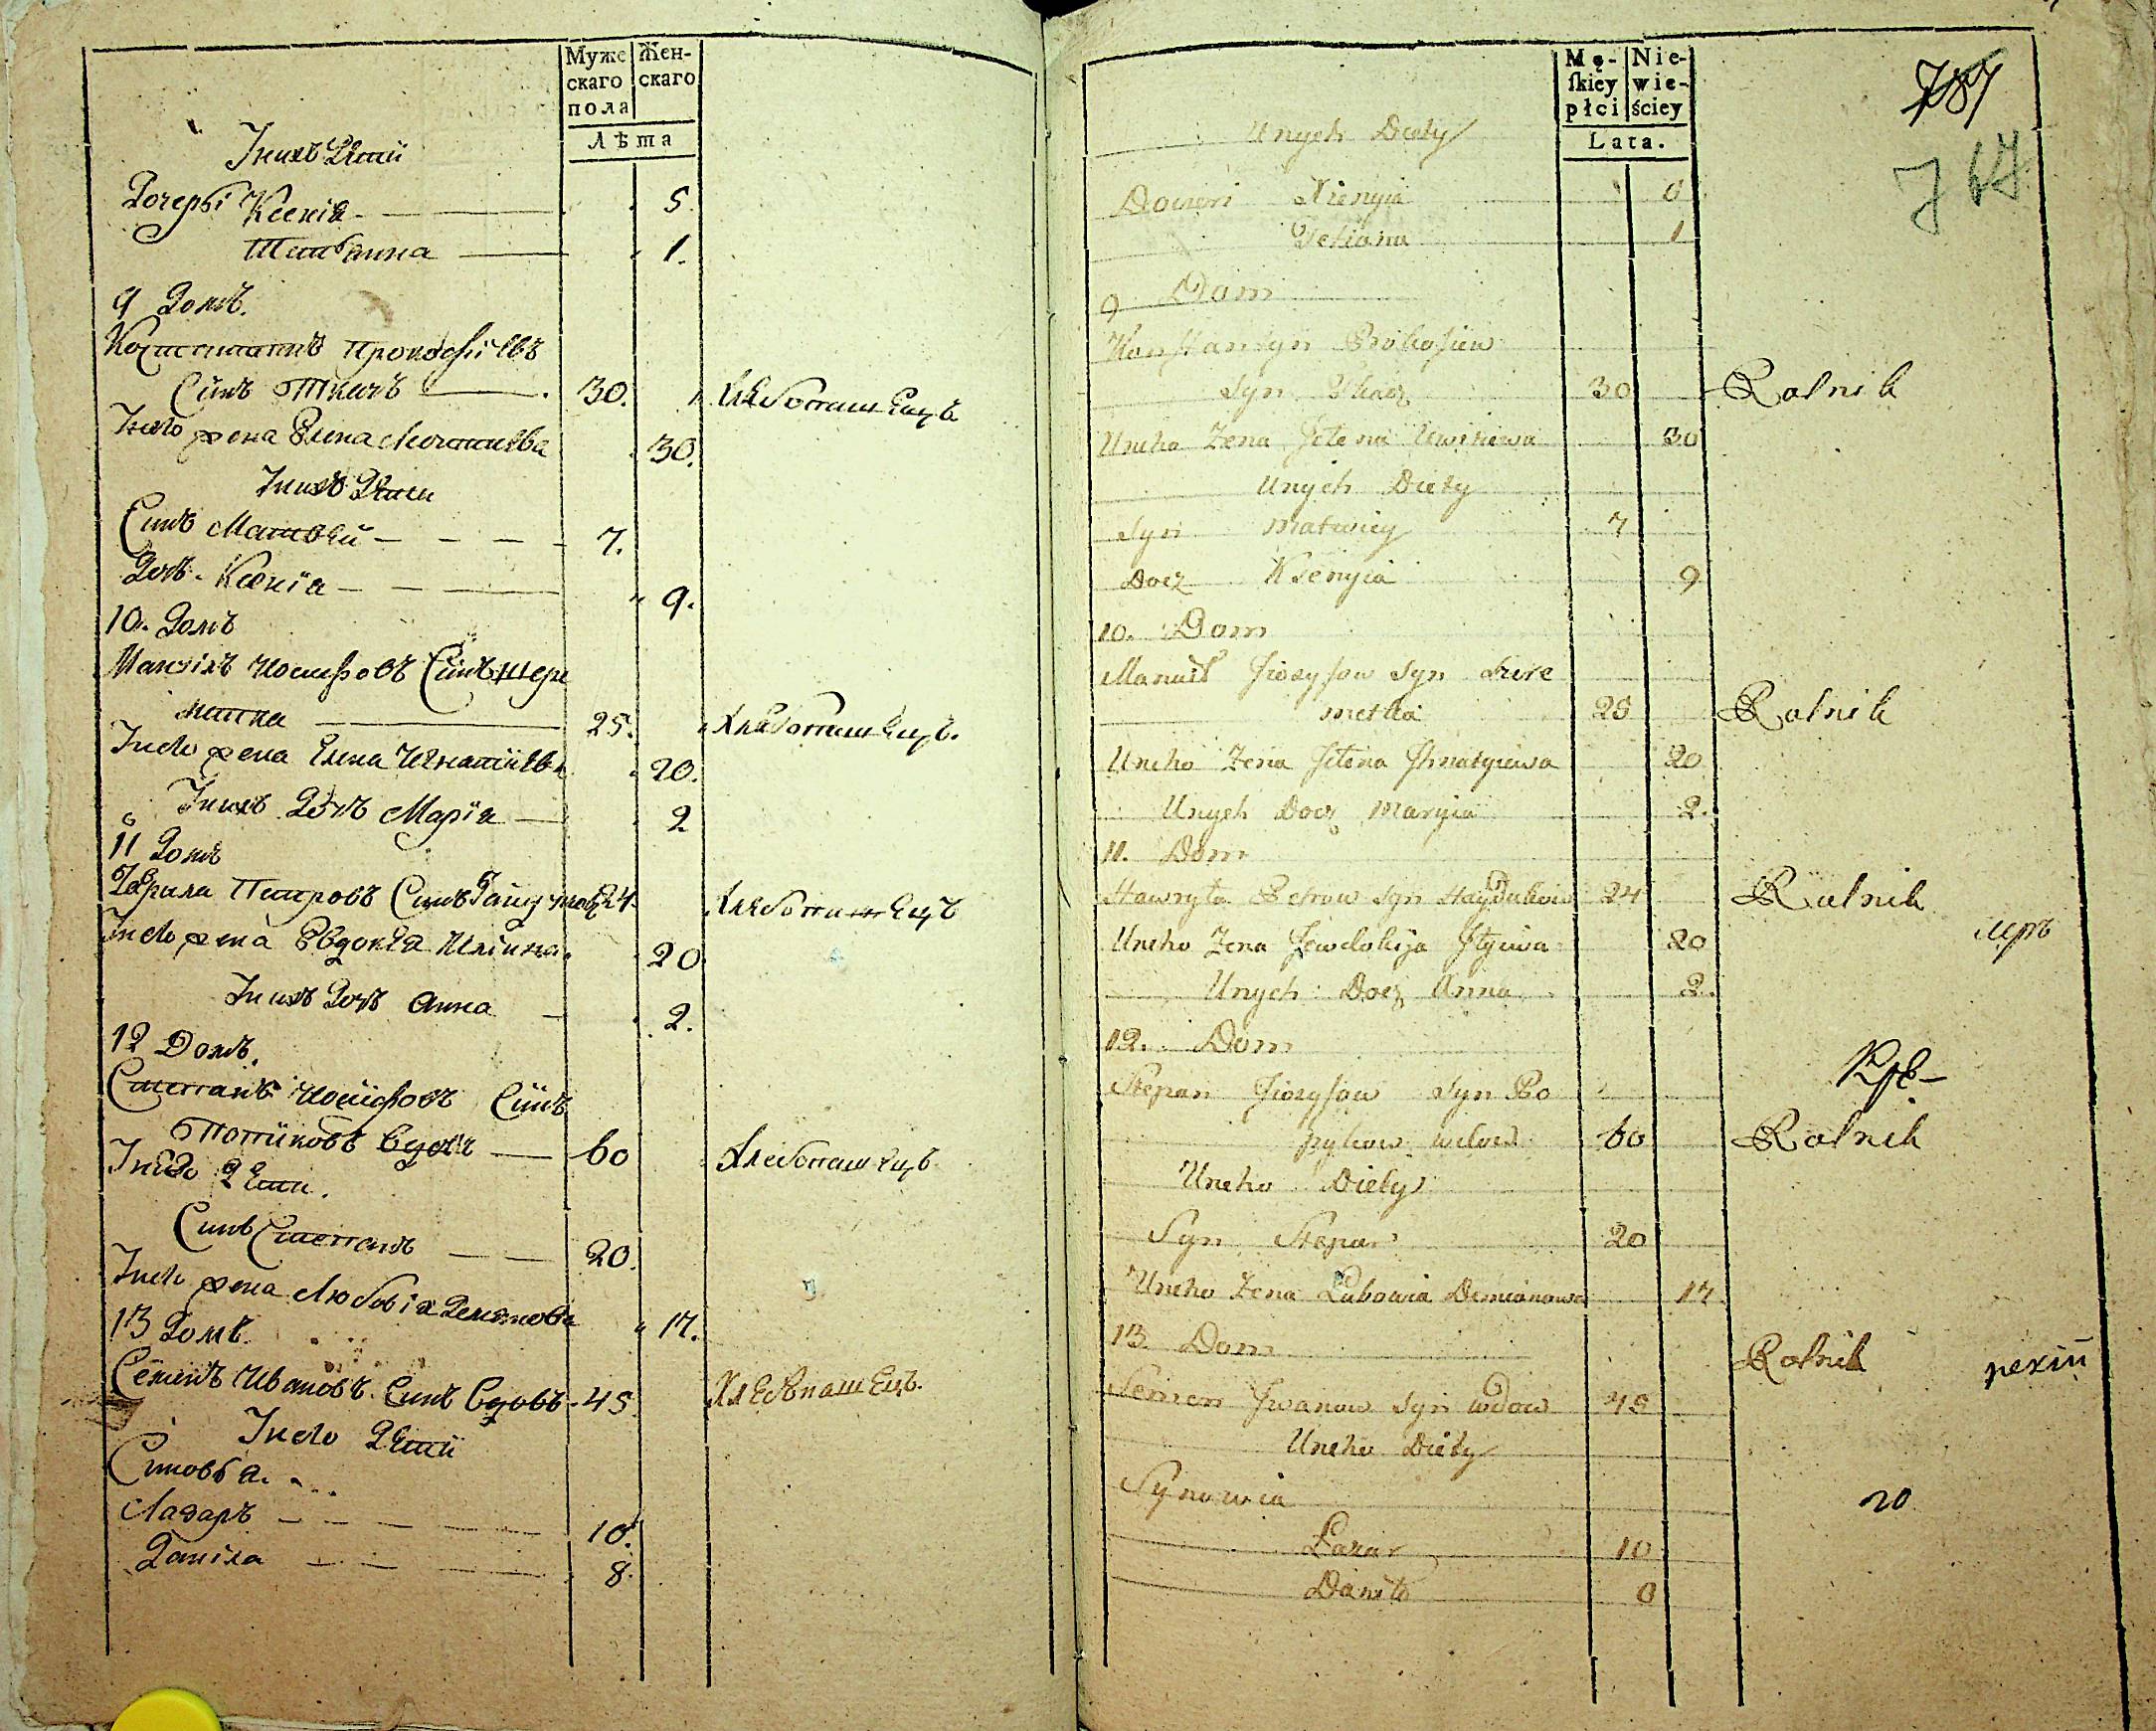 Муже
скаго
пола
Жен-
скаго
Лѣта
Інихъ Дѣти
Дочерьі Ксенія 5.
Татьянна 1.
9 Домъ.
Константинъ Прокофіевъ
Синъ Ткачъ 30. Хлебопашецъ
Інего жена Елена 30.
Інихъ Дѣти
Синъ Матвей 7.
Дочъ Ксенїа 9.
10. Домъ
Манойлъ Иосифовъ Синъ Шере
метка 25. Хлебопашецъ.
Інего жена Елена Игнатиева 20.
Інихъ Дочъ Марїа 2
11 Домъ
Гаврила Петровъ Синъ 24. Хлебопашецъ
Інего жена Евдокея Илїина 20.
Інихъ Дочъ Анна 2.
12 Домъ.
Степанъ Иосифовъ Синъ
Попиковъ вдовъ 60 Хлебопашецъ
Інего Дети.
Синъ Степанъ 20.
Інего жена Любовія Демянова 17.
13 Домъ
Семенъ Ивановъ Синъ Вдовъ 45 Хлебопашецъ.
Інего Дети
Синовья.
Лазаръ 10.
Данила 8.
Mę-
skiey
płci
Nie-
wie-
ściey
Lata.
787
Unych Diety
Doczeri Xienyia
Tetiana 1
9 Dom
Konstantyn Prokofiew
Syn Tkacz 30 Rolnik
Uneho Zena Jelena 30
Unych Diety
Syn Matwiey 7
Docz Ksenyia 9
10. Dom
Manuił Jiozyfow Syn Szere
metka 25 Rolnik
Uneho Zena Jelena Jhnatyiewa 20
Unych Docz Maryia 2.
11. Dom
Hawryła Petrow Syn Haydukow 24 Rolnik
Uneho Zena Jewdokija Jlyiwa 20
Unych Docz Anna 2.
12. Dom
Stepan Jiozyfow Syn Po
pykow wdow 60 Rolnik
Uneho Diety
Syn Stepan 20
Uneho Zena Lubowia Demianowa 17
13 Dom Rolnik
Semen Jwanow Syn wdow 45
Uneho Diety
Synowia
Łazar 10
Daniło